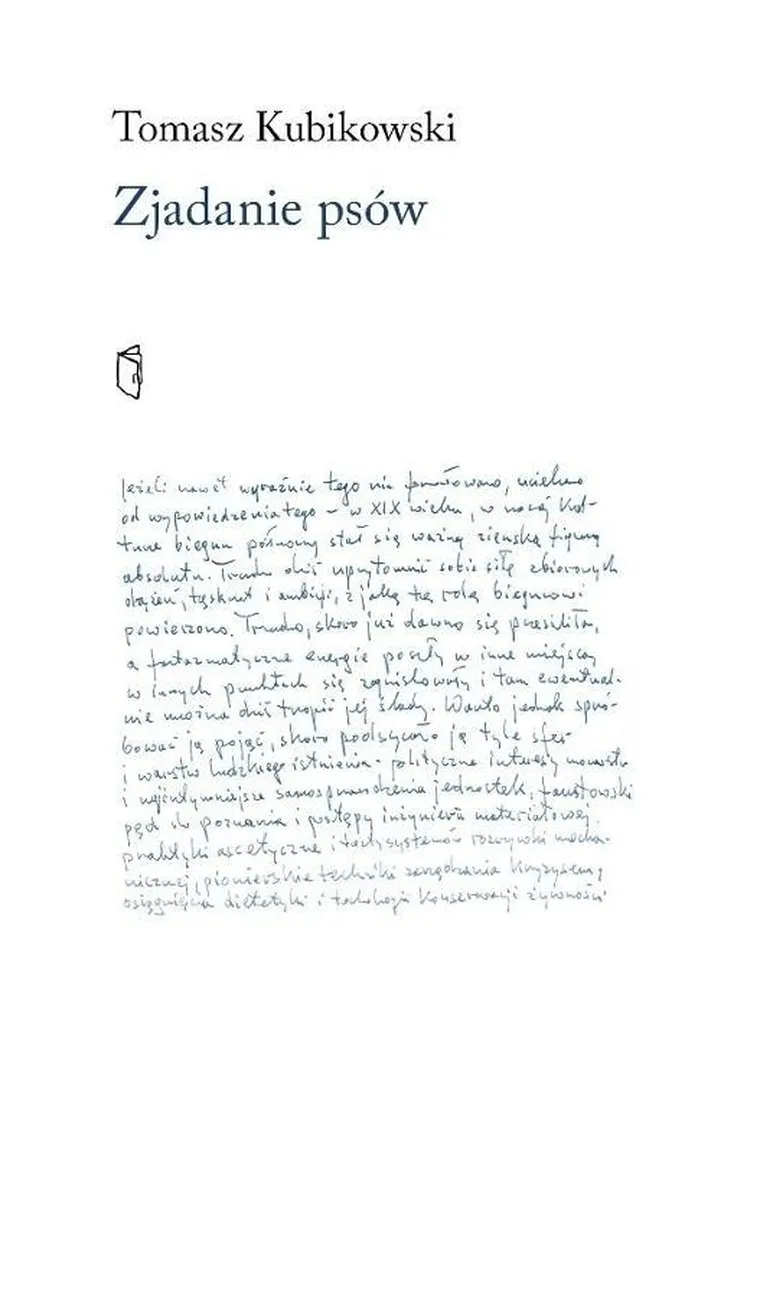 Tomasz Kubikowski
Zjadanie psów
Jeżeli nawet wyraźnie tego nie
od wypowiedzenia tego – w XIX wieku, w naszej kul-
turze biegun północny stał się ważną ziemską figurą
absolutu. Trudno dziś uprzytomnić sobie siłę zbiorowych
dążeń, tęsknot i ambicji, z jaką tę rolę biegunowi
powierzono. Trudno, skoro już dawno się przesiliła,
a fantazmatyczne energie poszły w inne miejsca,
w innych punktach się zogniskowały i tam ewentual-
nie można dziś tropić jej ślady. Warto jednak spró-
bować ją pojąć, skoro podsycało ją tyle sfer
i warstw ludzkiego istnienia: polityczne interesy mocarstw
i najintymniejsze samosprawdzenia jednostek, faustowski
pęd do poznania i postępy inżynierii materiałowej,
praktyki ascetyczne i rozrywki maso-
pionierskie techniki zarządzania kryzysem,
osiągnięcia dietetyki i technologii konserwacji żywności